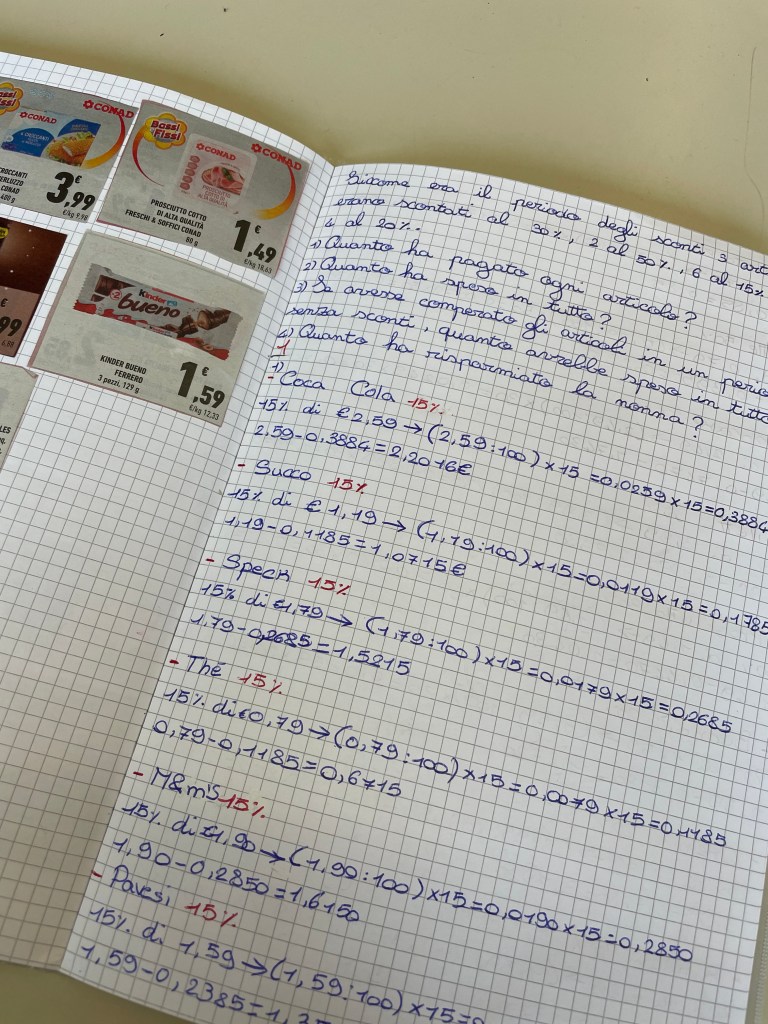 CONAD
CONAD
4 CROCCANTI
CONAD
400 g
3,99
€
€/kg 9,98
Bassi
Fissi
CONAD
CONAD
PROSCIUTTO COTTO
DI ALTA QUALITÀ
FRESCHI & SOFFICI CONAD
80 g
1,49
€
€/kg 18,63
99
€
kinder
bueno
KINDER BUENO
FERRERO
3 pezzi, 129 g
1,59
€
€/kg 12,33
Siccome era il periodo degli sconti 3 art
erano scontati al 30%, 2 al 50%, 6 al 15%
4 al 20%.
1) Quanto ha pagato ogni articolo?
2) Quanto ha speso in tutto?
3) Se avesse comperato gli articoli in un perio
senza sconti, quanto avrebbe speso in tutto
4) Quanto ha risparmiato la nonna?
1
1)
- Coca Cola 15%
15% di € 2,59 → (2,59:100) × 15 = 0,0259 × 15 = 0,3884
2,59 - 0,3884 = 2,2016€
- Succo 15%
15% di € 1,19 → (1,19:100) × 15 = 0,0119 × 15 = 0,1785
1,19 - 0,1185 = 1,0715€
- Speck 15%
15% di €1,79 → (1,79:100) × 15 = 0,0179 × 15 = 0,2685
1,79 - 0,2685 = 1,5215
- Thé 15%
15% di €0,79 → (0,79:100) × 15 = 0,0079 × 15 = 0,1185
0,79 - 0,1185 = 0,6715
- M&m'S 15%
15% di €1,90 → (1,90:100) × 15 = 0,0190 × 15 = 0,2850
1,90 - 0,2850 = 1,6150
- Pavesi 15%
15% di 1,59 → (1,59:100) × 15 =
1,59 - 0,2385 =